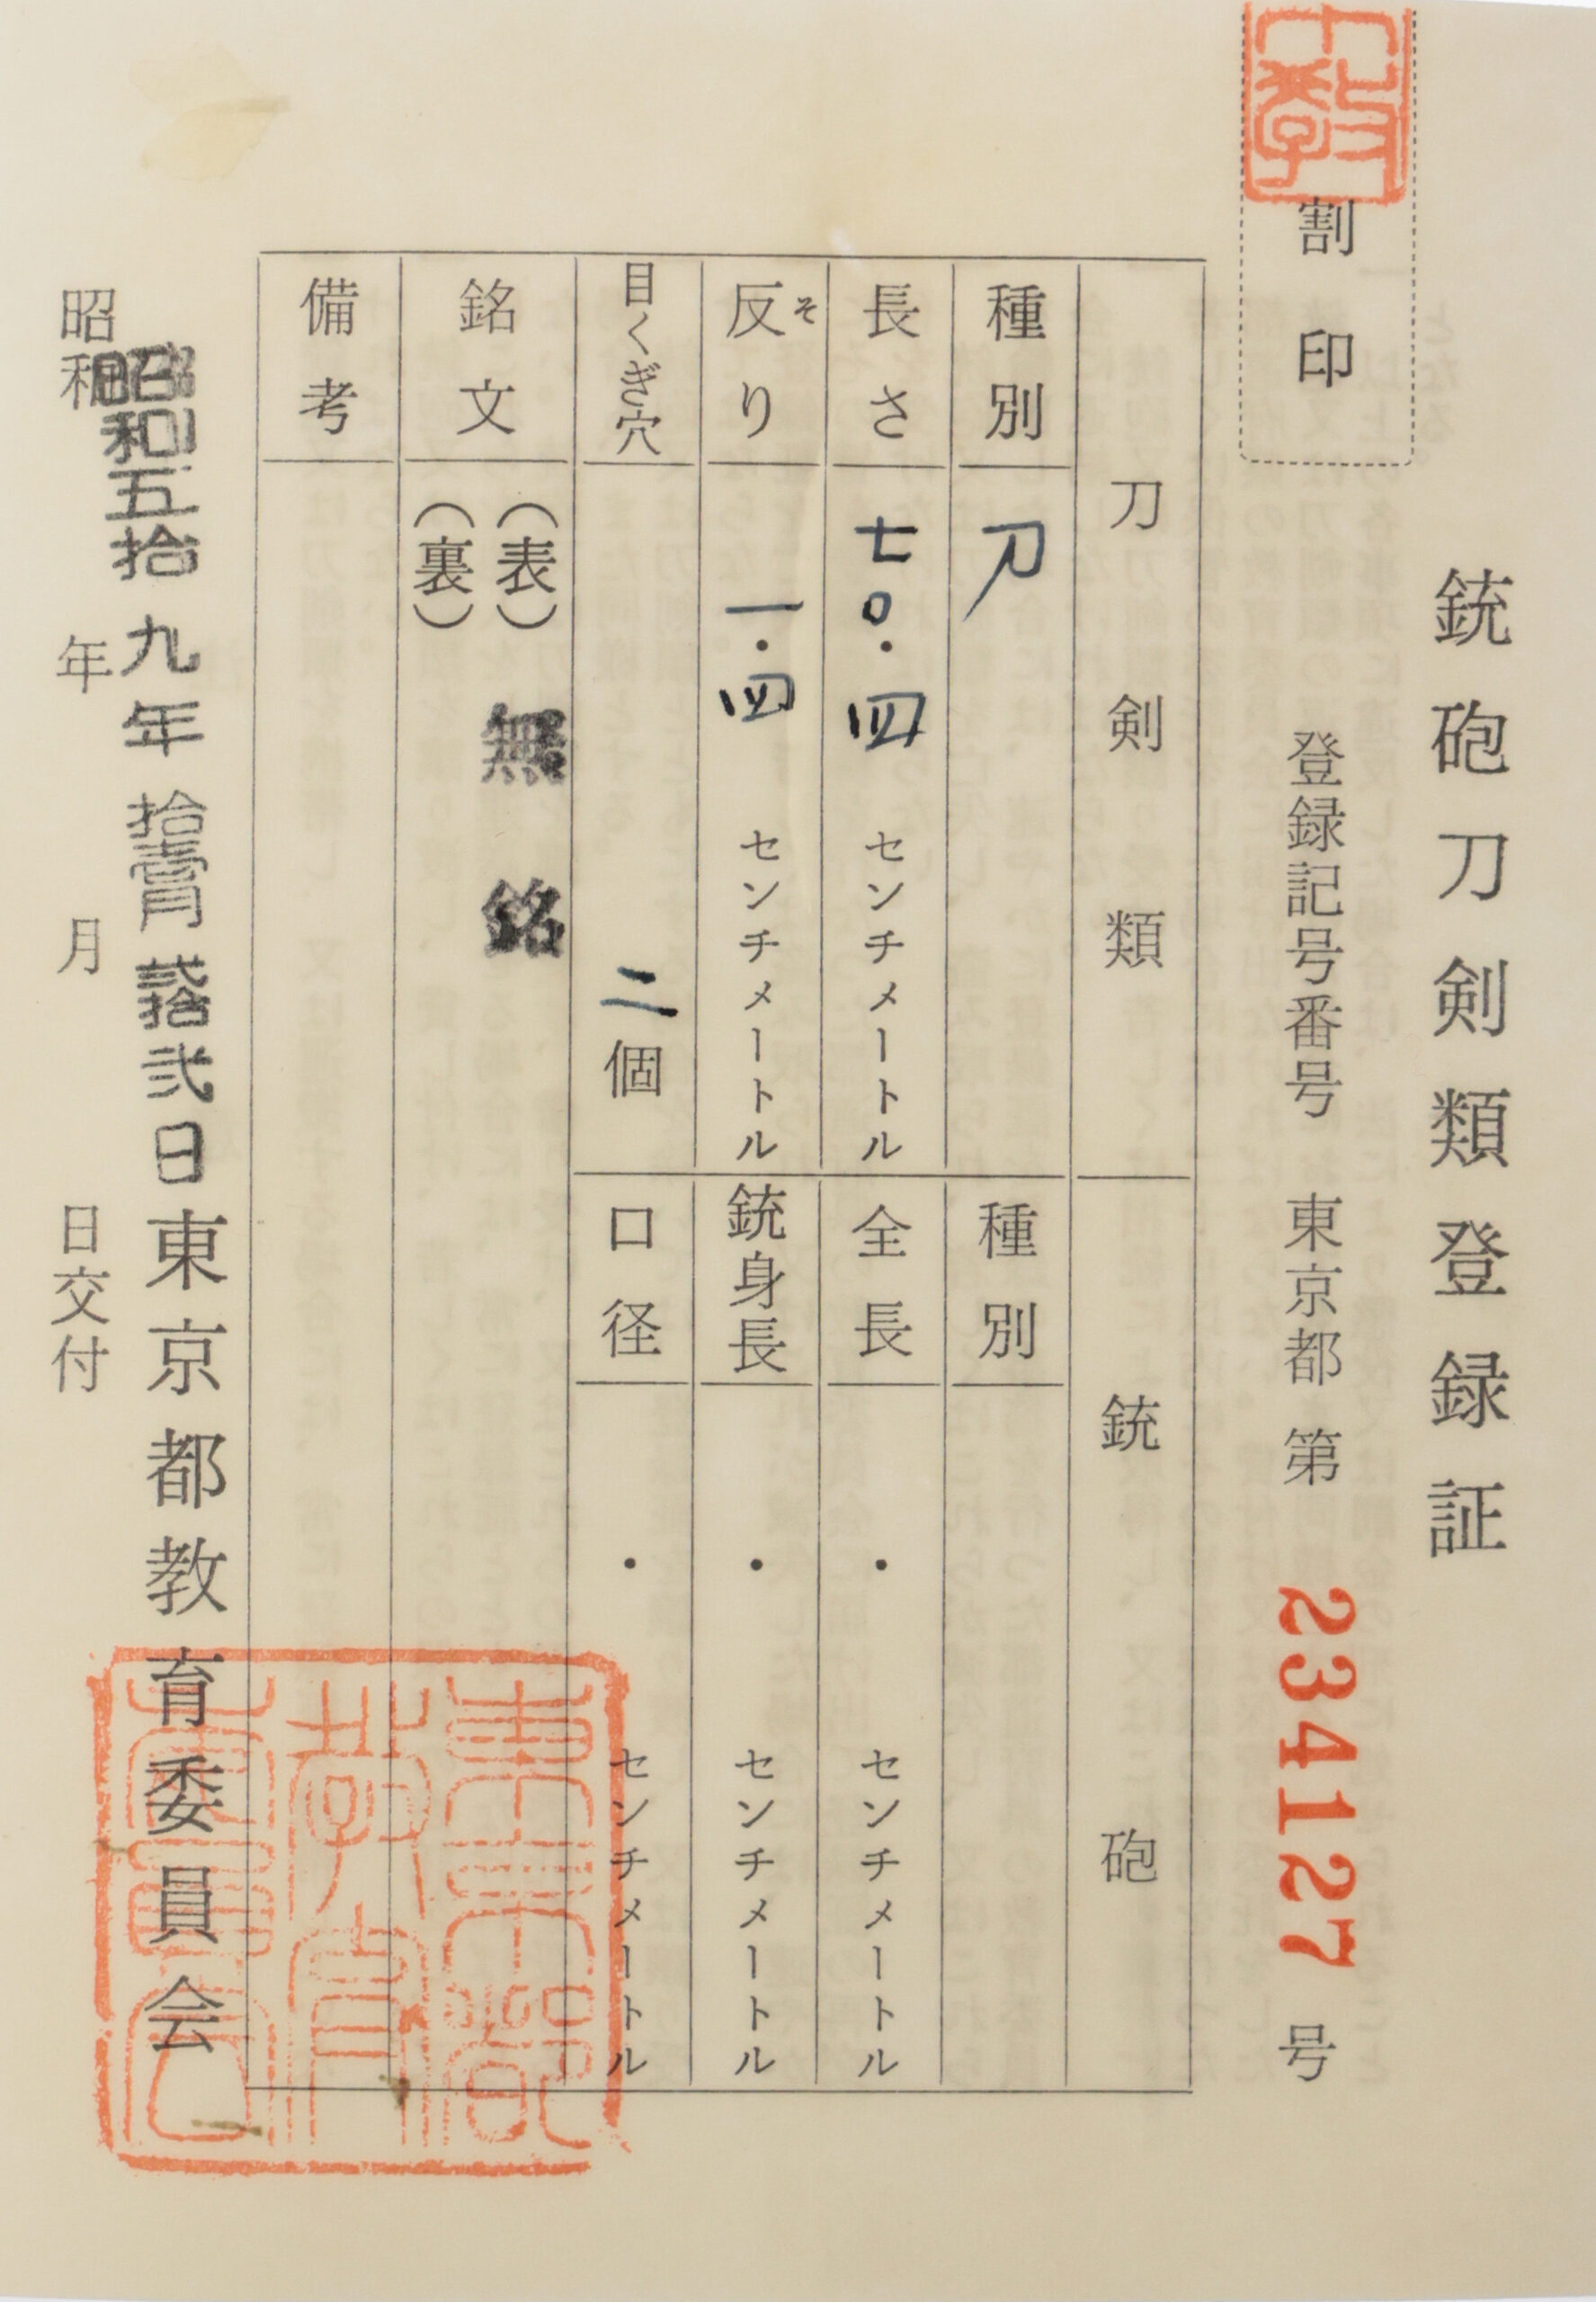 銃砲刀剣類登録証
割印
登録記号番号 東京都 第 234127 号
刀剣類
銃砲
種別 刀
種別
長さ 七〇・四 センチメートル
全長 ・ センチメートル
反り そ 一・四 センチメートル
銃身長 ・ センチメートル
目くぎ穴 二個
口径 ・ センチメートル
銘文 (表) 無銘
(裏)
備考
昭和五拾九年拾壹月貳拾弐日 東京都教育委員会
昭和 年 月 日交付